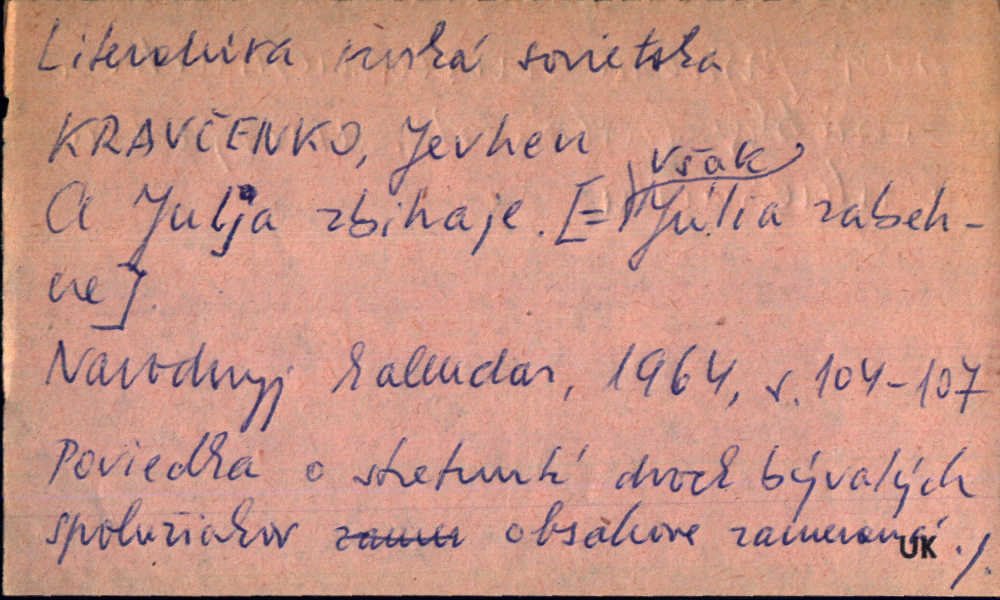 Literatúra ruská sovietska
KRAVČENKO, Jevhen
však
A Julja zbihaje. [= Júlia zabeh-
ne].
Narodnyj kalendar, 1964, s. 104-107
Poviedka o stretnutí dvoch bývalých
spolužiakov obsahove zameraná ./.
UK